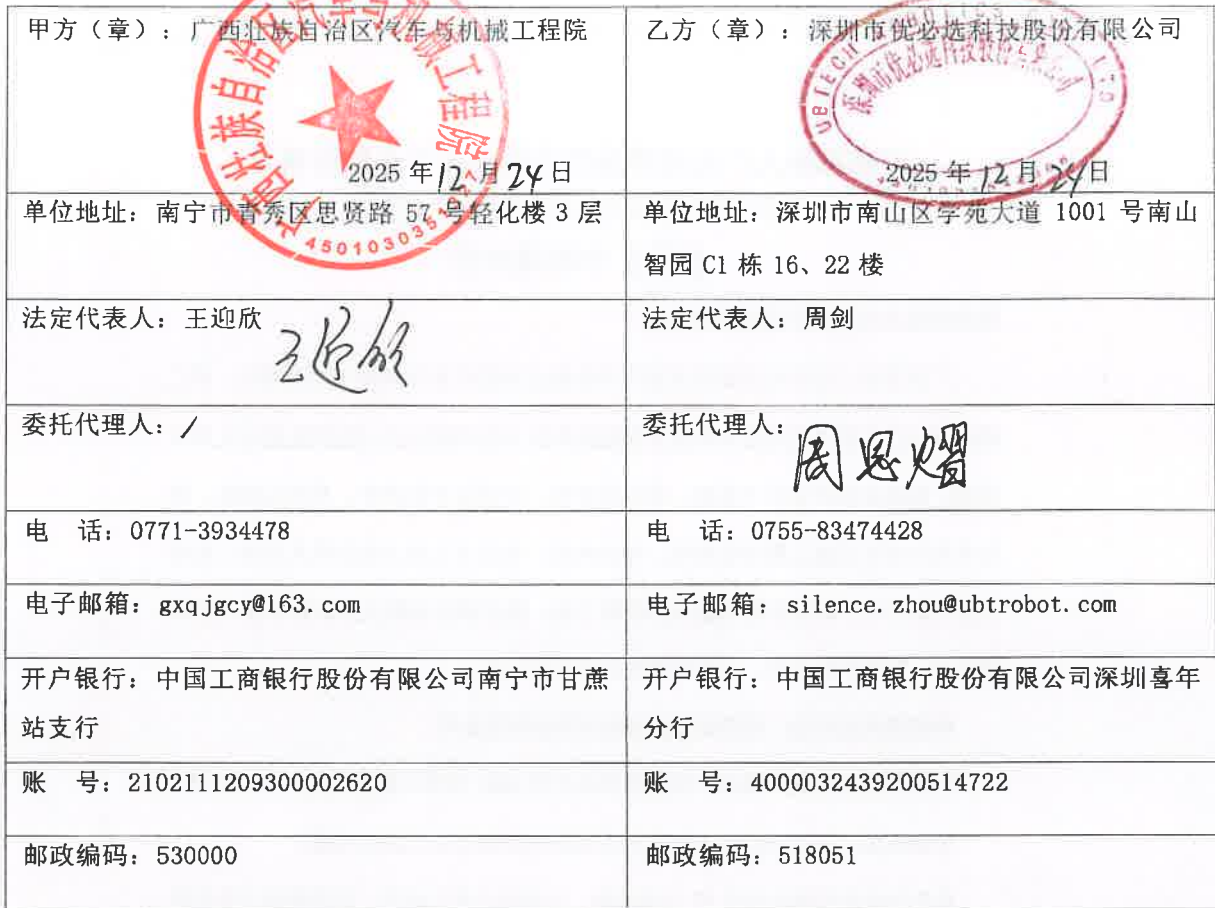 甲方（章）：广西壮族自治区汽车与机械工程院
2025 年 12 月 24 日
乙方（章）：深圳市优必选科技股份有限公司
2025 年 12 月 24 日
单位地址：南宁市青秀区思贤路 57 号轻化楼 3 层
单位地址：深圳市南山区学苑大道 1001 号南山
智园 C1 栋 16、22 楼
法定代表人：王迎欣
王迎欣
法定代表人：周剑
委托代理人：/
委托代理人：
周思熠
电 话：0771-3934478
电 话：0755-83474428
电子邮箱：gxqjgcy@163.com
电子邮箱：silence.zhou@ubtrobot.com
开户银行：中国工商银行股份有限公司南宁市甘蔗
站支行
开户银行：中国工商银行股份有限公司深圳喜年
分行
账 号：2102111209300002620
账 号：4000032439200514722
邮政编码：530000
邮政编码：518051